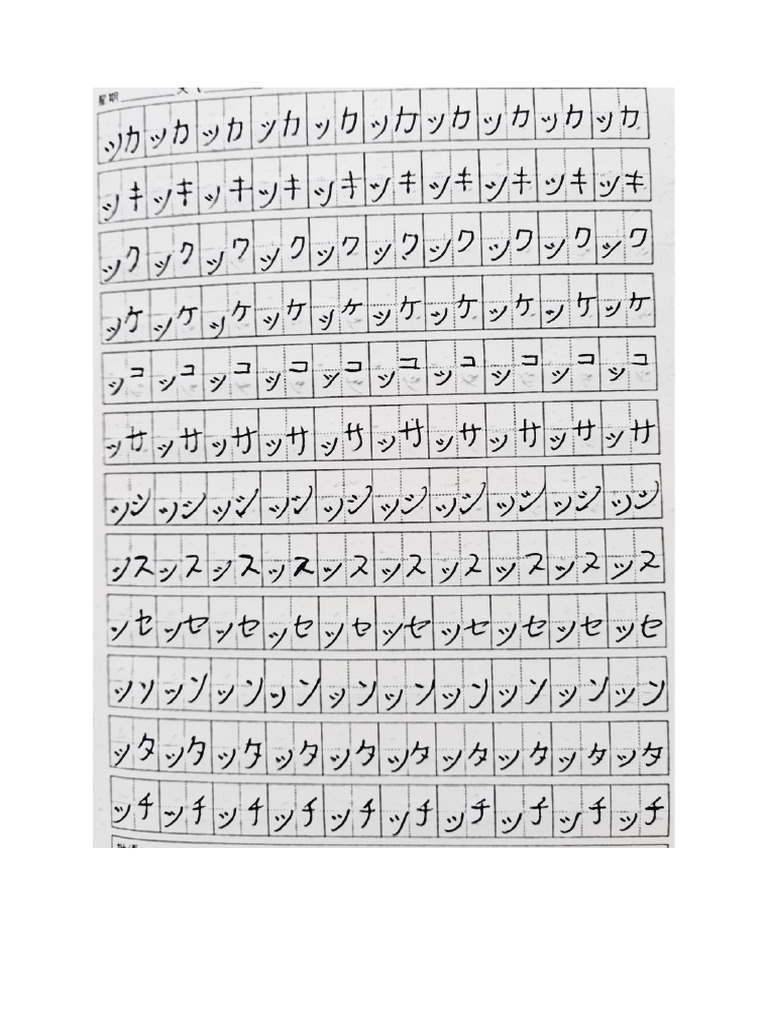 星期
ッカ ッカ ッカ ッカ ッカ ッカ ッカ ッカ ッカ ッカ
ッキ ッキ ッキ ッキ ッキ ッキ ッキ ッキ ッキ ッキ
ック ック ック ック ック ック ック ック ック ック
ッケ ッケ ッケ ッケ ッケ ッケ ッケ ッケ ッケ ッケ
ッコ ッコ ッコ ッコ ッコ ッコ ッコ ッコ ッコ ッコ
ッサ ッサ ッサ ッサ ッサ ッサ ッサ ッサ ッサ ッサ
ッシ ッシ ッシ ッシ ッシ ッシ ッシ ッシ ッシ ッシ
ッス ッス ッス ッス ッス ッス ッス ッス ッス ッス
ッセ ッセ ッセ ッセ ッセ ッセ ッセ ッセ ッセ ッセ
ッソ ッソ ッソ ッソ ッソ ッソ ッソ ッソ ッソ ッソ
ッタ ッタ ッタ ッタ ッタ ッタ ッタ ッタ ッタ ッタ
ッチ ッチ ッチ ッチ ッチ ッチ ッチ ッチ ッチ ッチ